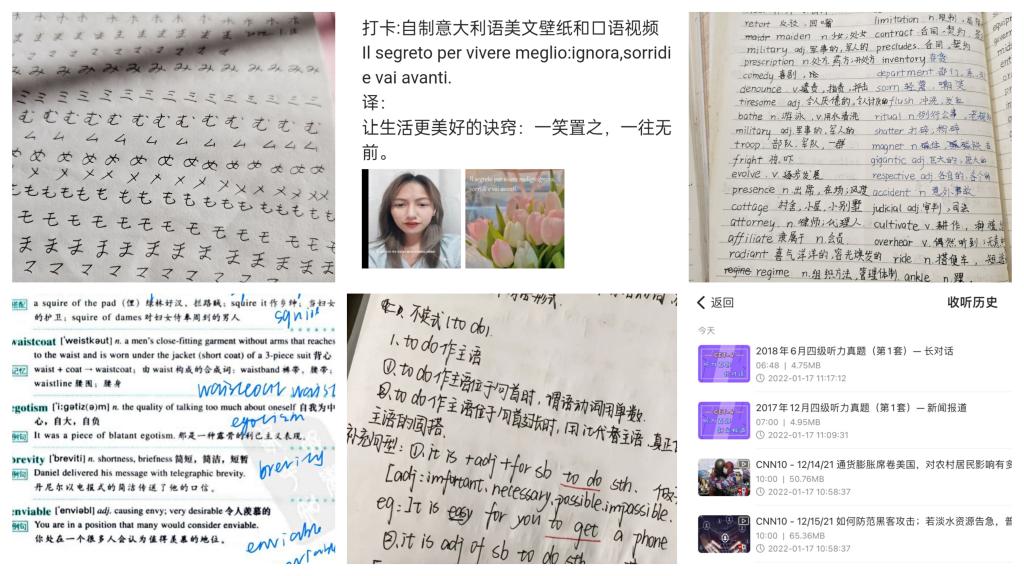 ミ ミ ミ ミ ミ ミ ミ
む む む む む む む む む
ム ム ム ム ム ム ム ム
め め め め め め め め め
メ メ メ メ メ メ メ メ メ
も も も も も も も も も
モ モ モ モ モ モ モ モ
ま ま ま ま ま ま ま ま
マ マ マ マ マ マ マ マ
打卡:自制意大利语美文壁纸和口语视频
Il segreto per vivere meglio:ignora,sorridi
e vai avanti.
译:
让生活更美好的诀窍：一笑置之，一往无
前。
retort 反驳,回嘴
maiden n.少女,处女
military adj.军事的,军人的
prescription n.处方,药方;开处方
comedy 喜剧
denounce v.谴责,指责,抨击
tiresome adj 令人厌倦的,令人讨厌的
bathe n.游泳 v.用水清洗
military adj.军事的,军人的
troop 部队,军队,一群
fright 惊吓
evolve v.逐步发展
presence n.出席,在场;风度
cottage 村舍,小屋,小别墅
attorney n.律师;代理人
affiliate 隶属于 n.会员
radiant 喜气洋洋的,容光焕发的
regime regime n.组织方法,管理体制
limitation n.限制
contract 合同,契约
precludes 合同,契约
inventory 存货
department 部门
scorn 轻蔑,嘲笑
flush 冲洗,发红
ritual n.例行公事
shatter 打碎,粉碎
magnet n.磁体
gigantic adj.巨大的
respective adj 各自的,各个的
accident n 意外事故
judicial adj.审判,司法
cultivate v.耕作
overhear v.偶然听到
ride n.搭便车
ankle n.踝
搭配 a squire of the pad（俚）绿林好汉，拦路贼；squire it 作乡绅；当妇女
的护卫；squire of dames 对妇女侍奉周到的男人
squire
waistcoat [ˈweistkəut] n. a men's close-fitting garment without arms that reaches
to the waist and is worn under the jacket (short coat) of a 3-piece suit 背心
记忆 waist + coat → waistcoat；由 waist 构成的合成词：waistband 裤带，腰带；
waistline 腰围；腰身
waistcoat waist
egotism [ˈi:gətiz(ə)m] n. the quality of talking too much about oneself 自我为中
心，自大，自负
egotism
例句 It was a piece of blatant egotism. 那是一种露骨的利己主义表现。
brevity [ˈbreviti] n. shortness, briefness 简短，简洁，短暂
brevity
例句 Daniel delivered his message with telegraphic brevity.
丹尼尔以电报式的简洁传送了他的口信。
enviable [ˈenviəbl] adj. causing envy; very desirable 令人羡慕的
例句 You are in a position that many would consider enviable.
你处在一个很多人会认为值得羡慕的地位。
enviable
不定式(to do).
1. to do 作主语
①. to do 作主语位于句首时,谓语动词用单数.
②. to do 作主语位于句首较长时,用it代替主语,真正
主语的后搭.
补充句型: ①. it is +adj +for sb to do sth.
[adj: important, necessary, possible. impossible.
eg: It is easy for you to get a phone
②. it is adj of sb to do sth
返回
收听历史
今天
2018年6月四级听力真题（第1套）— 长对话
06:48 | 4.75MB
2022-01-17 11:17:12
2017年12月四级听力真题（第1套）— 新闻报道
07:00 | 4.95MB
2022-01-17 11:09:31
CNN10 - 12/14/21 通货膨胀席卷美国，对农村居民影响有多
10:00 | 50.76MB
2022-01-17 10:58:37
CNN10 - 12/15/21 如何防范黑客攻击；若淡水资源告急，普
10:00 | 65.36MB
2022-01-17 10:58:37